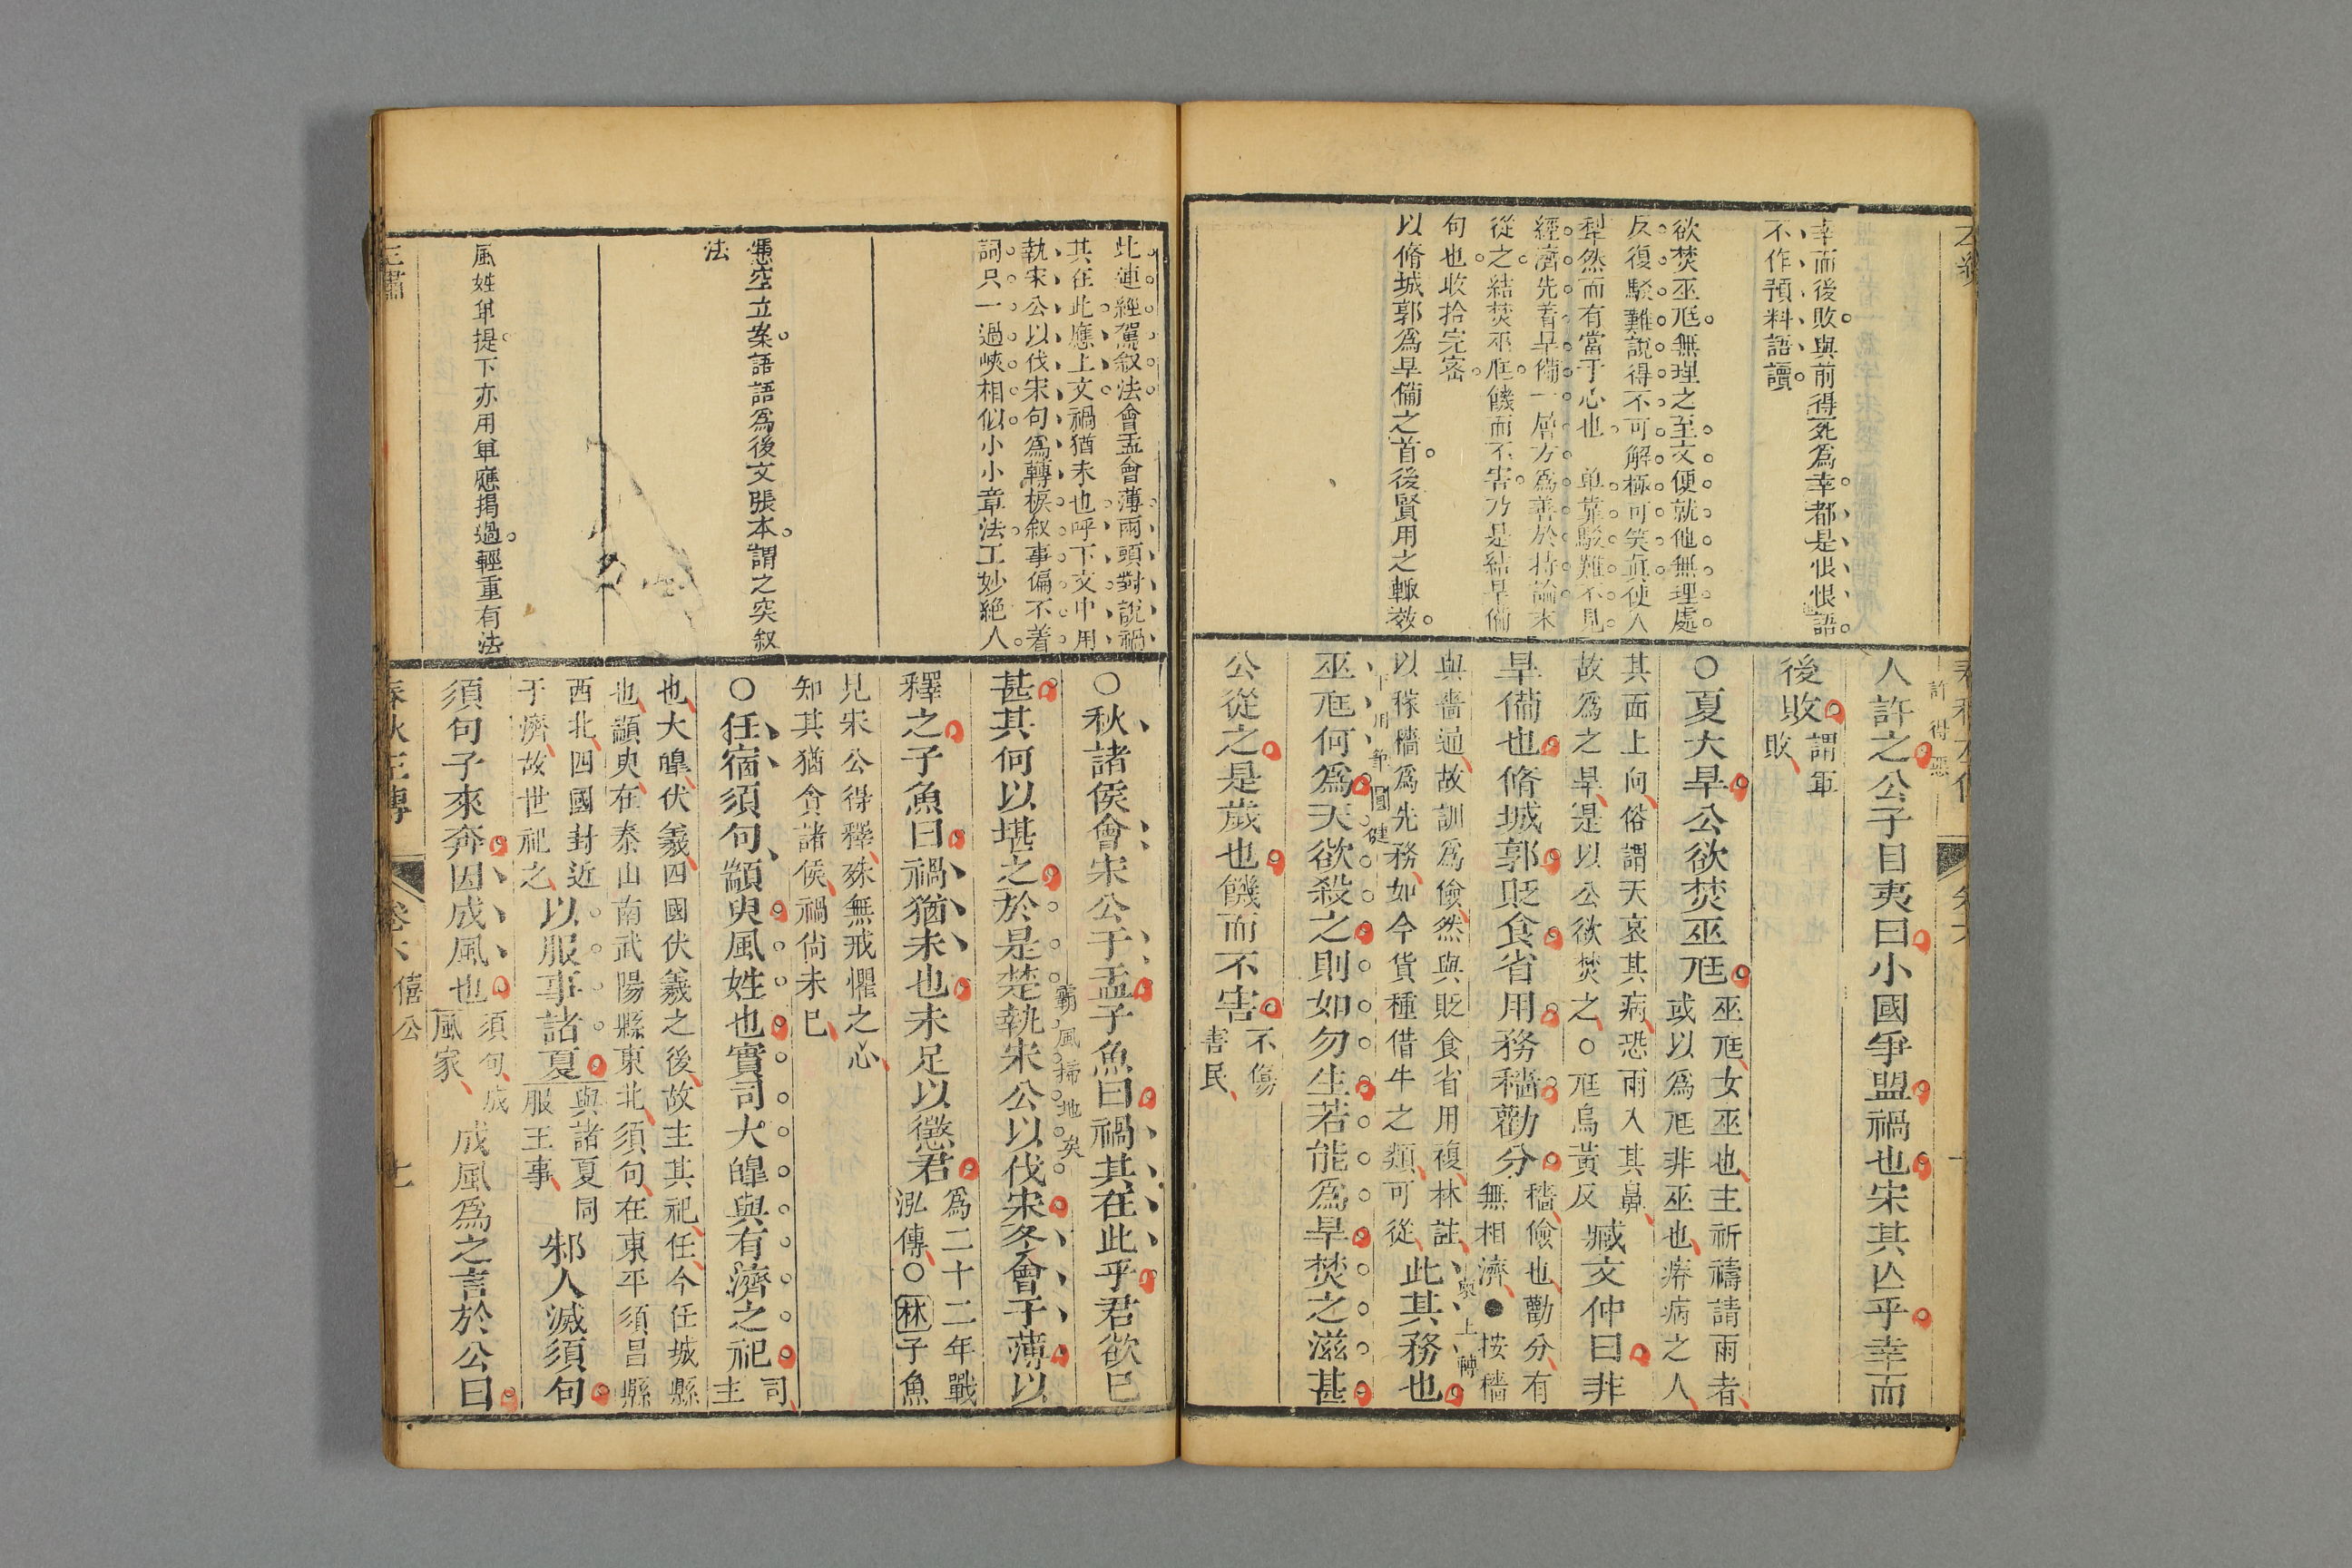 幸而後敗與前得死爲幸都是恨恨語
不作預料語讀
欲焚巫尫無理之至文便就他無理處
反復駁難說得不可解極可笑眞使人
犁然而有當于心也　单靠駁難不見
經濟先着旱備一層方爲善於持論末
從之結焚巫尫饑而不害乃是結旱備
句也收拾完密
以脩城郭爲旱備之首後賢用之輙效
人許之公子目夷曰小國爭盟禍也宋其亾乎幸而
許得惡
後敗謂軍
敗
○夏大旱公欲焚巫尫巫尫女巫也主祈禱請雨者
或以爲尫非巫也瘠病之人
其面上向俗謂天哀其病恐雨入其鼻
故爲之旱是以公欲焚之○尫烏黃反臧文仲曰非
旱備也脩城郭貶食省用務穡勸分穡儉也勸分有
無相濟●按穡
與嗇通故訓爲儉然與貶食省用複林註
以稼穡爲先務如今貨種借牛之類可從此其務也
與上轉
下用筆圓健
巫尫何爲天欲殺之則如勿生若能爲旱焚之滋甚
公從之是歲也饑而不害不傷
害民
此連經駕叙法會盂會薄兩頭對說禍
其在此應上文禍猶未也呼下文中用
執宋公以伐宋句爲轉棙叙事偏不着
詞只一過峽相似小小章法工妙絶人
憑空立案語語爲後文張本謂之突叙
法
風姓单提下亦用单應揭過輕重有法
○秋諸侯會宋公于盂子魚曰禍其在此乎君欲巳
甚其何以堪之於是楚執宋公以伐宋冬會于薄以
霸風掃地矣
釋之子魚曰禍猶未也未足以懲君爲二十二年戰
泓傳○林子魚
見宋公得釋殊無戒懼之心
知其猶貪諸侯禍尙未巳
○任宿須句顓臾風姓也實司大皥與有濟之祀司
主
也大皥伏羲四國伏羲之後故主其祀任今任城縣
也顓臾在泰山南武陽縣東北須句在東平須昌縣
西北四國封近
于濟故世祀之以服事諸夏與諸夏同
服王事邾人滅須句
須句子來奔因成風也須句成
風家成風爲之言於公曰
春秋左傳
卷六
僖公
七